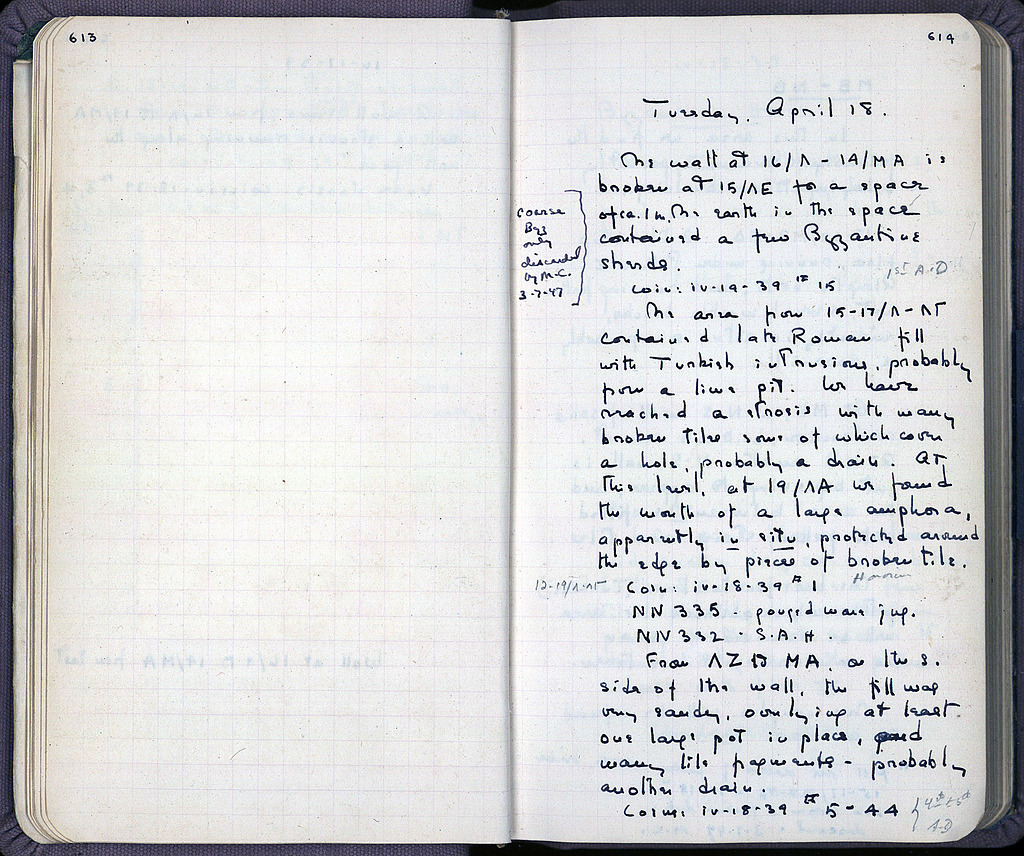 613
614
Tuesday, April 18.
The wall at 16/Λ - 14/MA is
broken at 15/ΛE for a space
of ca. 1 m. The earth in the space
contained a few Byzantine
sherds.
1st A.D
coarse
Byz
only
discarded
by M.C.
3-7-47
Coin: iv-19-39 # 15
The area from 15-17/Λ-ΛΓ
contained late Roman fill
with Turkish intrusions, probably
from a lime pit. We have
reached a strosis with many
broken tiles some of which cover
a hole, probably a drain. At
this level, at 19/ΛA we found
the mouth of a large amphora,
apparently in situ, protected around
the edge by pieces of broken tile.
12-19/Λ-ΛΓ
Coin: iv-18-39 # 1
NN 335 - gouged ware jug.
NN 332 - S.A.H
From ΛZ to MA, on the S.
side of the wall, the fill was
very sandy, overlying at least
one large pot in place, and
many tile fragments - probably
another drain.
Coins: iv-18-39 # 5-44
4th-5th
A.D